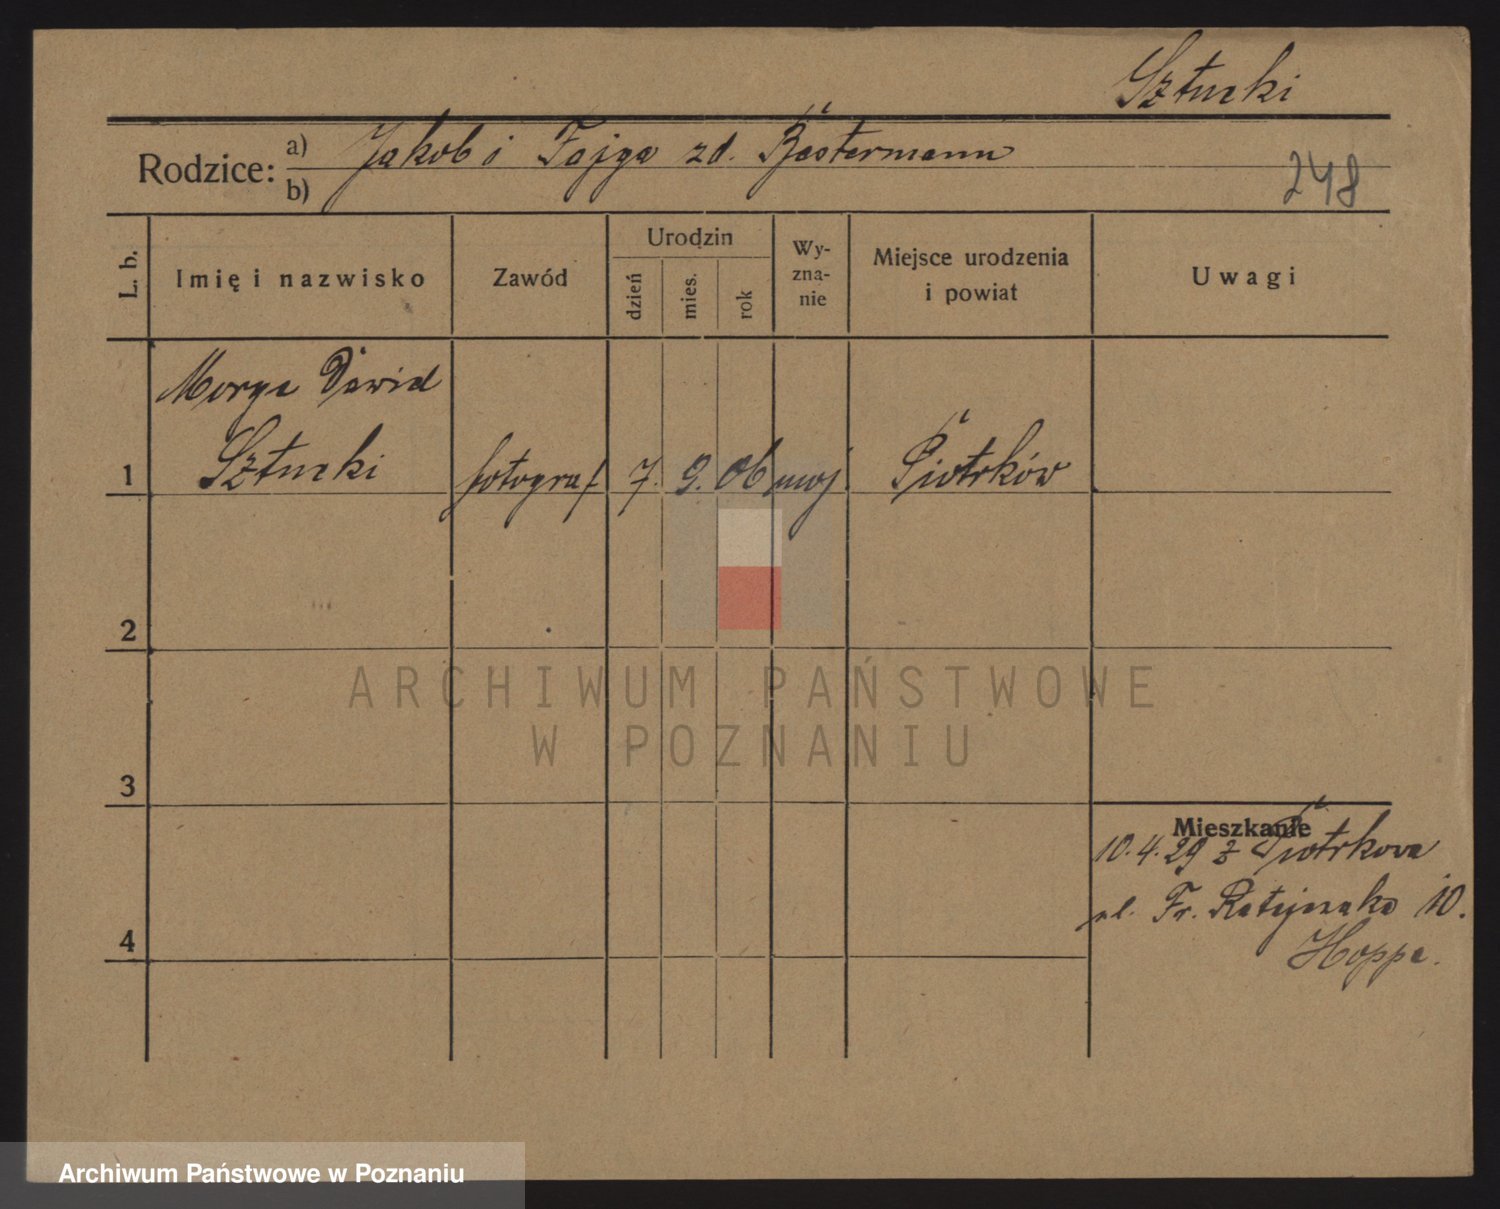 Sztucki
Rodzice: a) Jakob i Fajga zd. Bestermann
b)
248
L. b. Imię i nazwisko Zawód Urodzin dzień mies. rok Wy-zna-nie Miejsce urodzenia i powiat Uwagi
Moryc Dawid
1 Sztucki fotograf 7. 9. 06 moj. Piotrków
2
3
Mieszkanie
10.4.29 z Piotrkowa
ul. Fr. Ratajczaka 10.
Hoppe.
4
ARCHIWUM PAŃSTWOWE
W POZNANIU
Archiwum Państwowe w Poznaniu